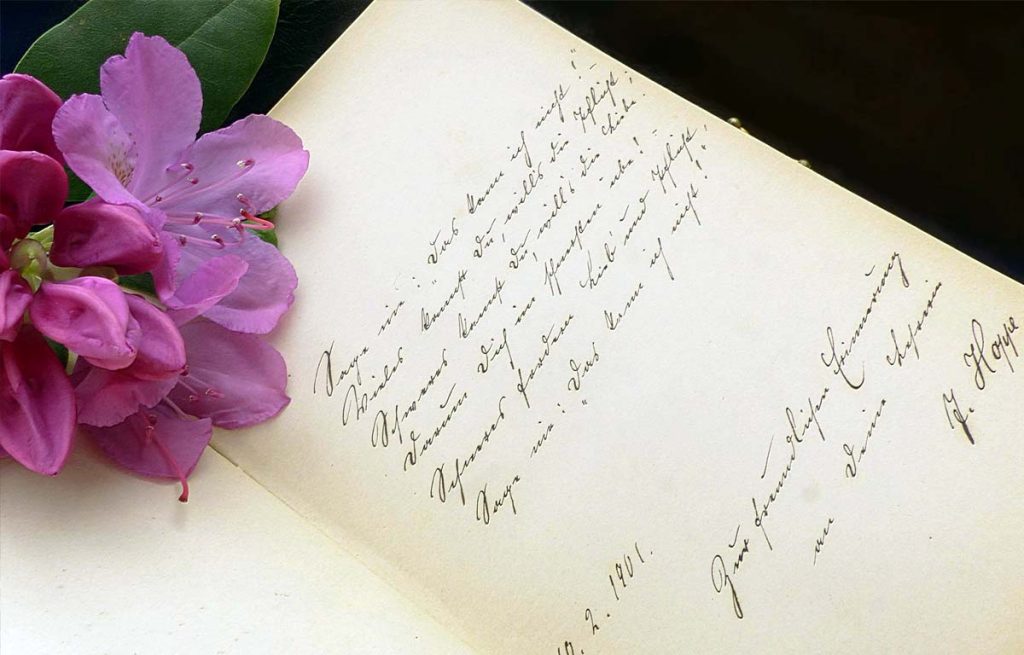 Sage nie: "Das kann ich nicht!"
Vieles kannst Du, will's die Pflicht;
Schweres kannst Du, will's die Liebe.
Darum Dich im Schwersten übe!
Schweres fordern Lieb' und Pflicht,
Sage nie: "Das kann ich nicht!"
Zur freundlichen Erinnerung
an Deine Lehrerin
J. Hoppe
2. 1901.